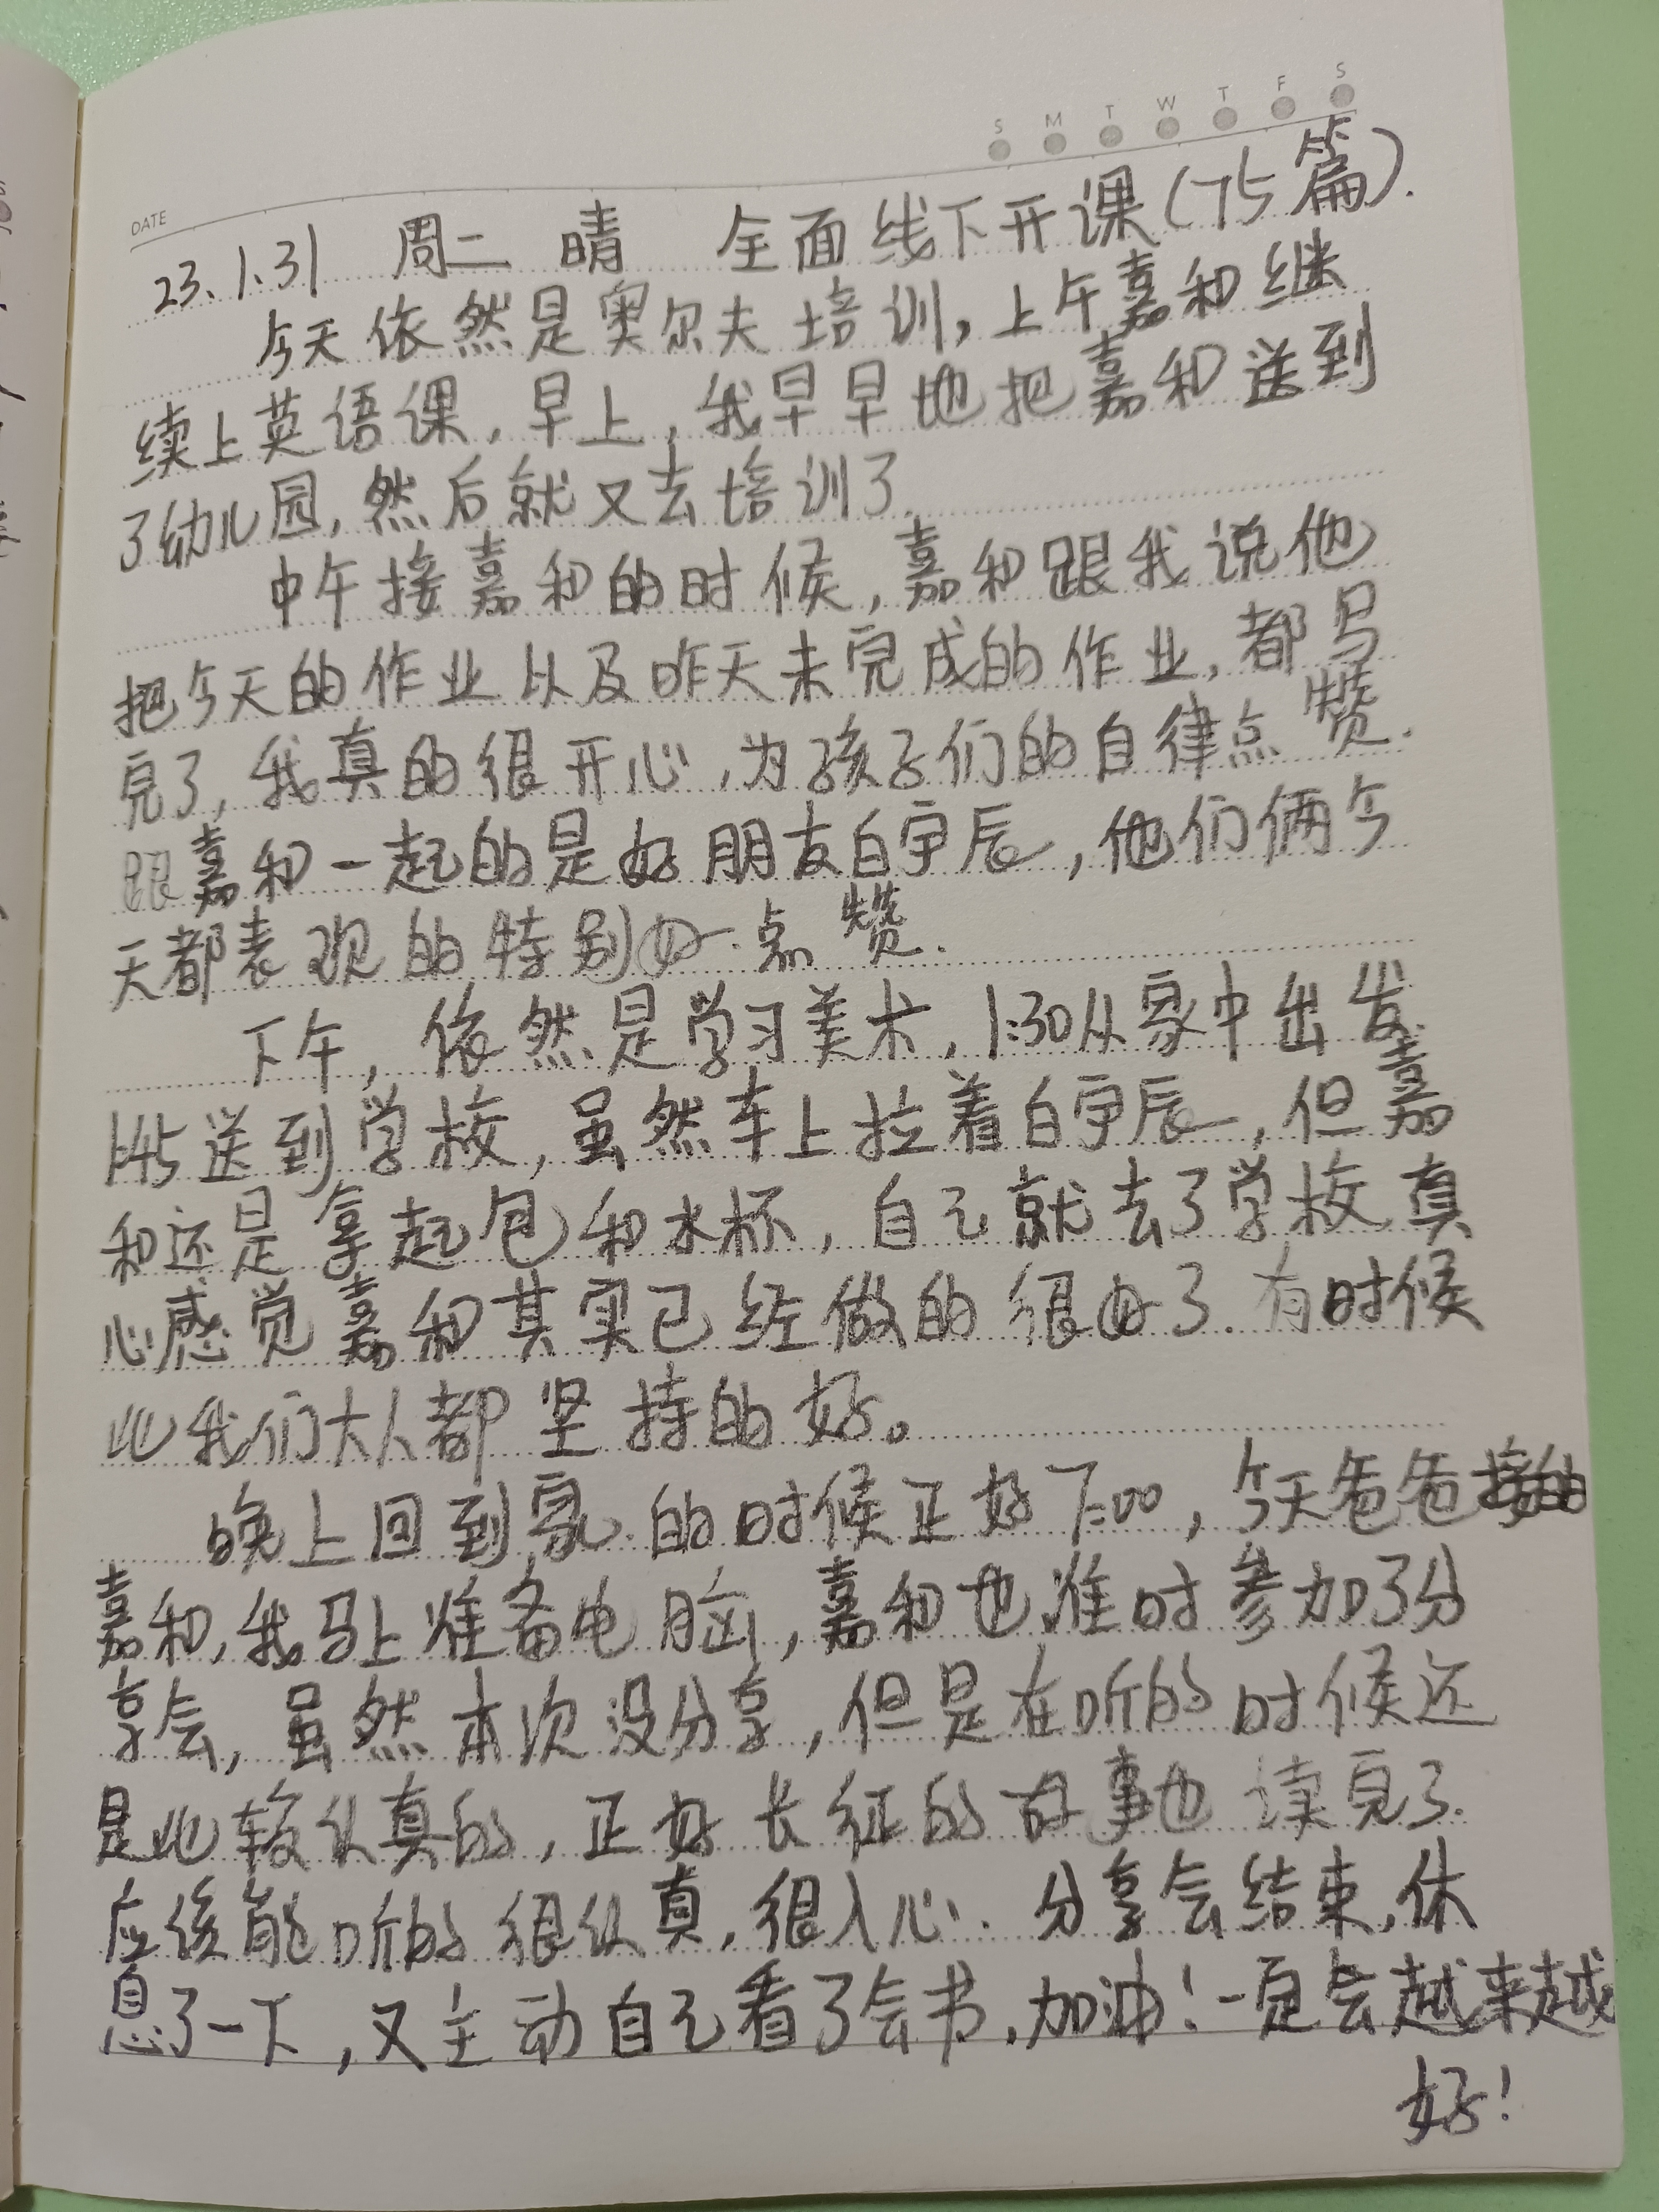 S M T W T F S
DATE
23.1.31 周二 晴 全面线下开课(75篇).
今天依然是奥尔夫培训,上午嘉和继
续上英语课,早上,我早早地把嘉和送到
了幼儿园,然后就又去培训了.
中午接嘉和的时候,嘉和跟我说他
把今天的作业以及昨天未完成的作业,都写
完了,我真的很开心,为孩子们的自律点赞.
跟嘉和一起的是好朋友白宇辰,他们俩今
天都表现的特别好.点赞.
下午,依然是学习美术,1:30从家中出发.
1:45送到学校,虽然车上拉着白宇辰,但嘉
和还是拿起包和水杯,自己就去了学校.真
心感觉嘉和其实已经做的很好了.有时候
比我们大人都坚持的好。
晚上回到家的时候正好7:00,今天爸爸接的
嘉和,我马上准备电脑,嘉和也准时参加了分
享会,虽然本次没分享,但是在听的时候还
是比较认真的,正好长征的故事也读完了.
应该能听的很认真,很入心.分享会结束,休
息了一下,又主动自己看了会书,加油!一定会越来越
好!